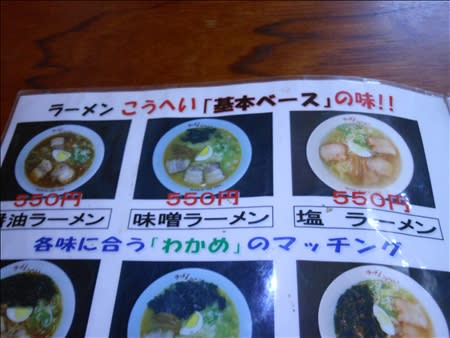 ラーメン こうへい「基本ベース」の味!!
550円 550円 550円
醤油ラーメン 味噌ラーメン 塩 ラーメン
各味に合う「わかめ」のマッチング